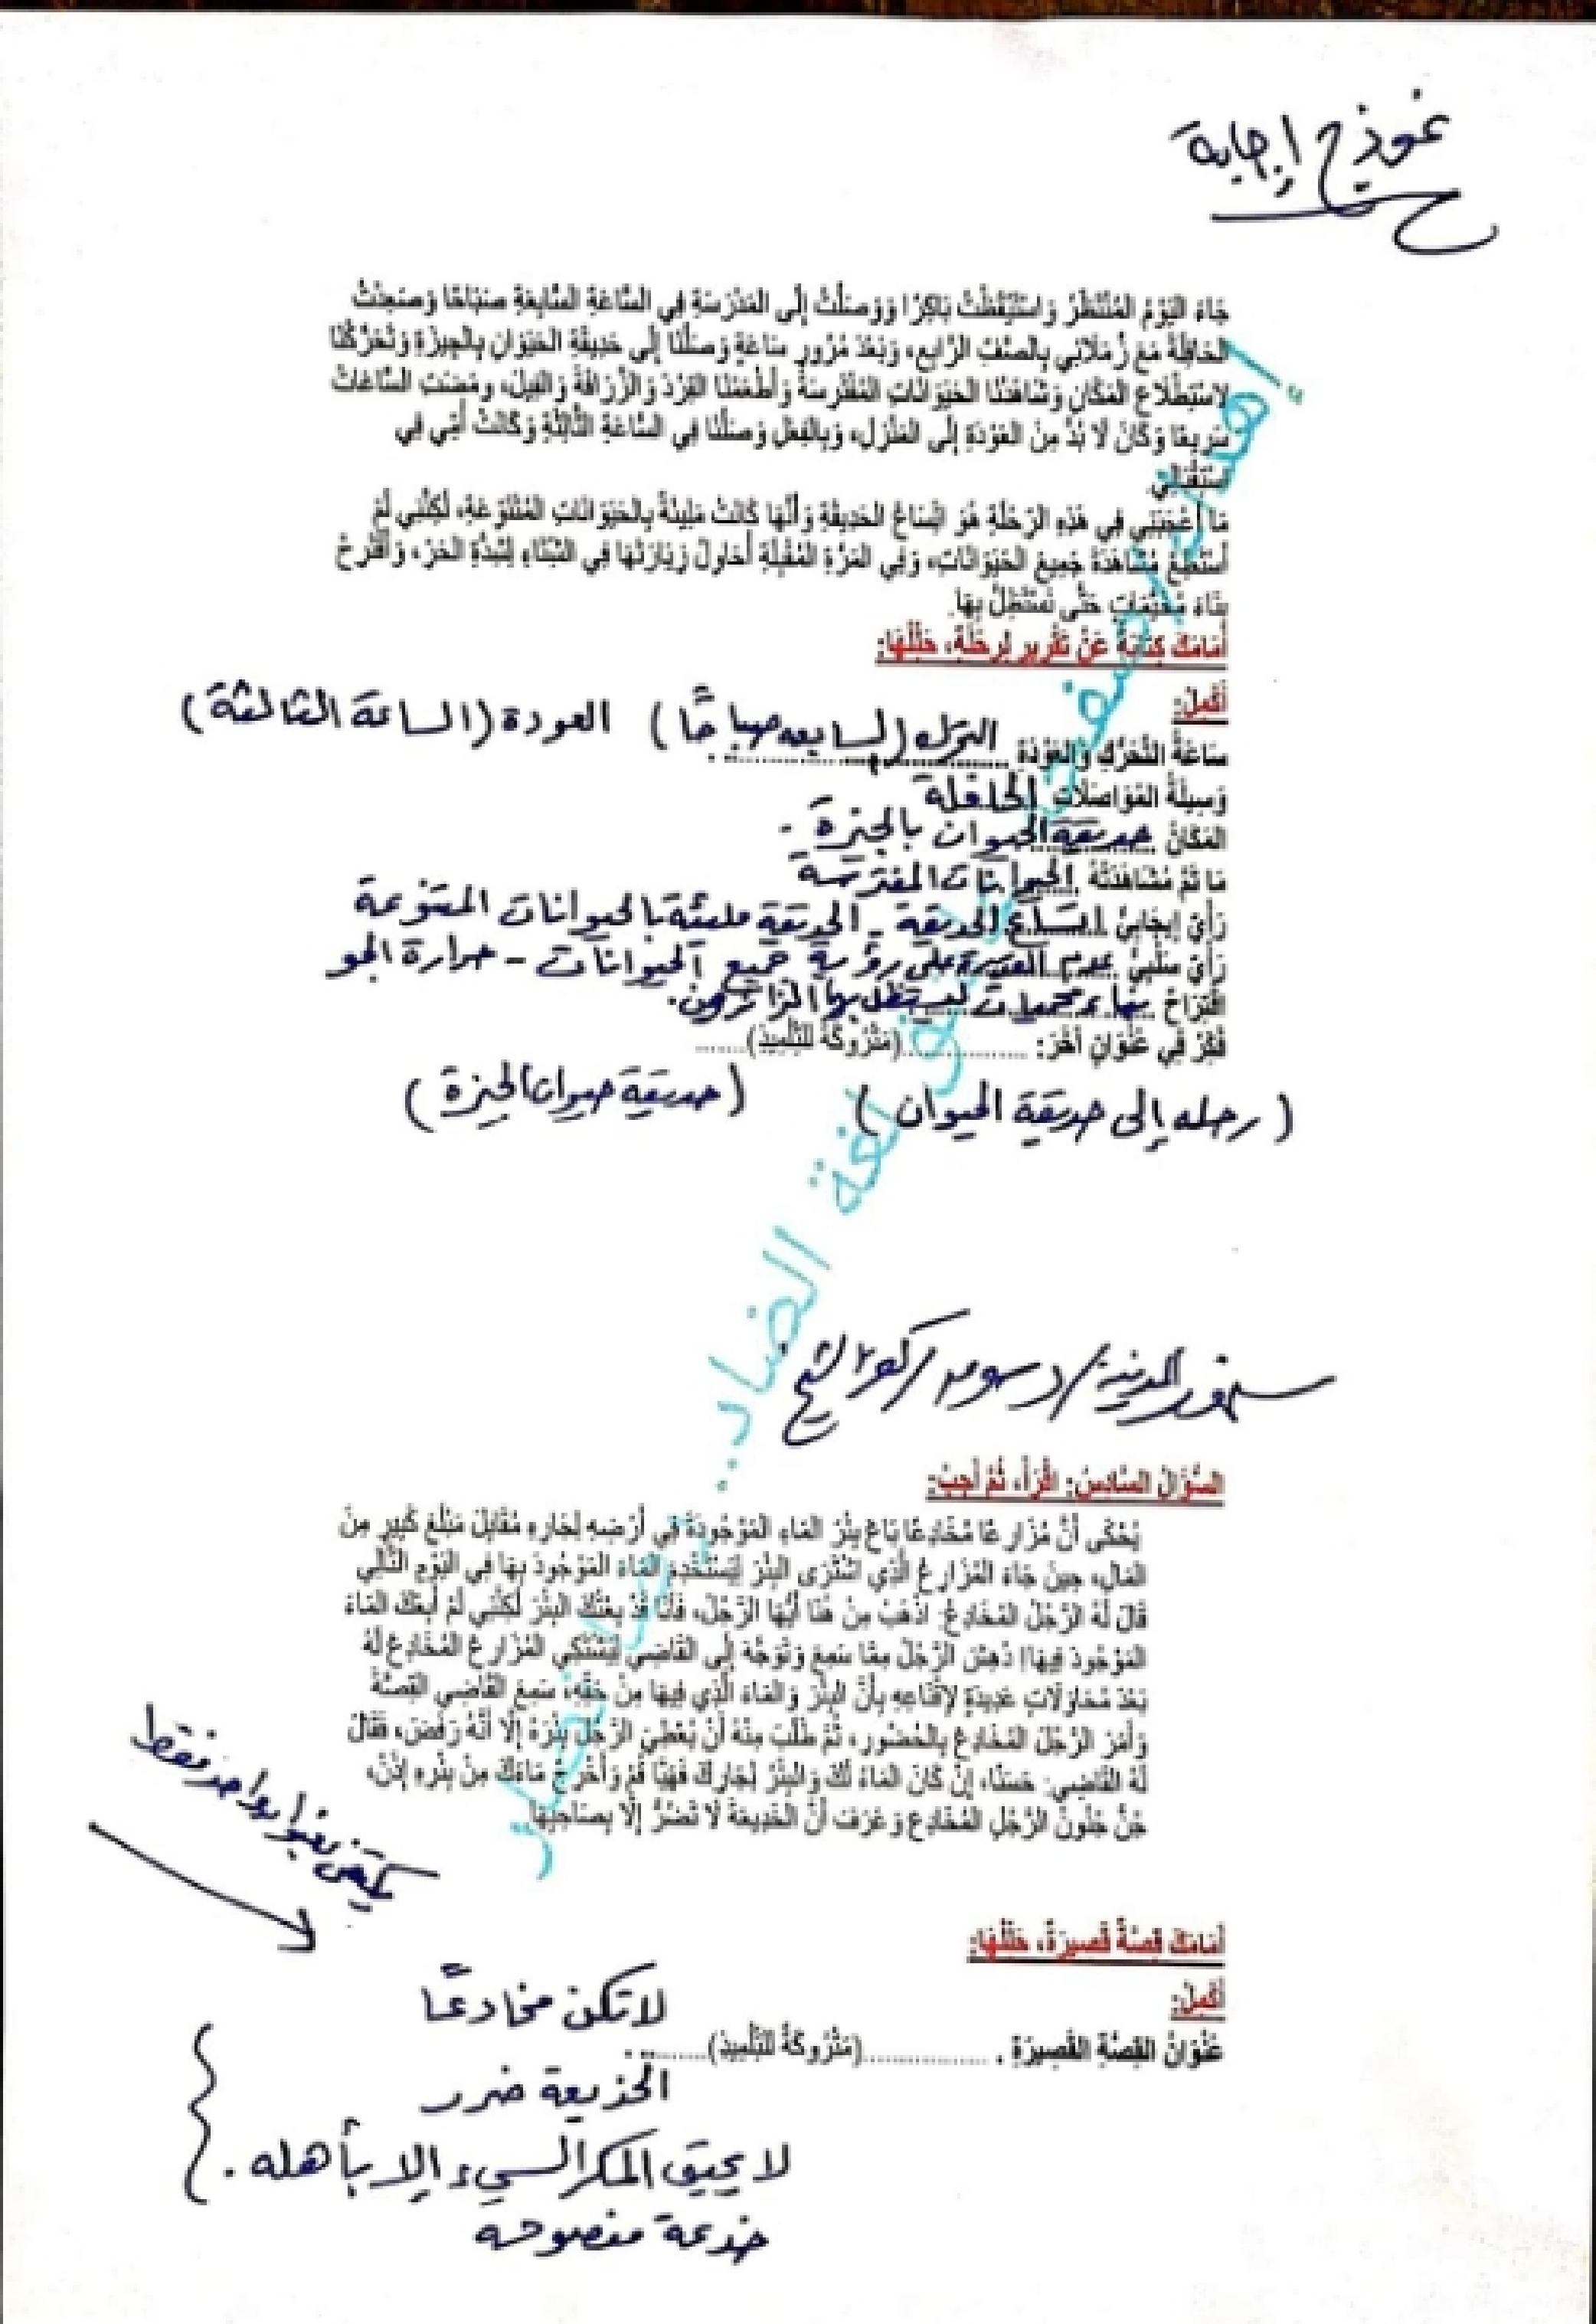 نموذج إجابة
جَاءَ اليَوْمُ المُنْتَظَرُ وَاسْتَيْقَظْتُ بَاكِرًا وَوَصَلْتُ إِلَى المَدْرَسَةِ فِي السَّاعَةِ السَّابِعَةِ صَبَاحًا وَصَعِدْتُ
الحَافِلَةَ مَعَ زُمَلَائِي بِالصَّفِّ الرَّابِعِ، وَبَعْدَ مُرُورِ سَاعَةٍ وَصَلْنَا إِلَى حَدِيقَةِ الحَيَوَانِ بِالجِيزَةِ وَتَحَرَّكْنَا
لِاسْتِطْلَاعِ المَكَانِ وَشَاهَدْنَا الحَيَوَانَاتِ المُفْتَرِسَةَ وَأَطْعَمْنَا القِرْدَ وَالزَّرَافَةَ وَالفِيلَ، ومَضَتِ السَّاعَاتُ
سَرِيعًا وَكَانَ لَا بُدَّ مِنَ العَوْدَةِ إِلَى المَنْزِلِ، وَبِالفِعْلِ وَصَلْنَا فِي السَّاعَةِ الثَّالِثَةِ وَكَانَتْ أُمِّي فِي
اسْتِقْبَالِي.
مَا أَعْجَبَنِي فِي هَذِهِ الرِّحْلَةِ هُوَ اتِّسَاعُ الحَدِيقَةِ وَأَنَّهَا كَانَتْ مَلِيئَةً بِالحَيَوَانَاتِ المُتَنَوِّعَةِ، لَكِنَّنِي لَمْ
أَسْتَطِعْ مُشَاهَدَةَ جَمِيعِ الحَيَوَانَاتِ، وَفِي المَرَّةِ المُقْبِلَةِ أُحَاوِلُ زِيَارَتَهَا فِي الشِّتَاءِ لِشِدَّةِ الحَرِّ، وَأَقْتَرِحُ
بِنَاءَ مُخَيَّمَاتٍ حَتَّى نَسْتَظِلَّ بِهَا.
أَمَامَكَ كِتَابَةٌ عَنْ تَقْرِيرٍ لِرِحْلَةٍ، حَلِّلْهَا:
أَكْمِلْ:
سَاعَةُ التَّحَرُّكِ وَالعَوْدَةِ التحرك (السابعة صباحًا) العودة (الساعة الثالثة)
وَسِيلَةُ المُوَاصَلَاتِ الحافلة
المَكَانُ حديقة الحيوان بالجيزة.
مَا تَمَّ مُشَاهَدَتُهُ الحيوانات المفترسة
رَأْيٌ إِيجَابِيٌّ اتساع الحديقة - الحديقة مليئة بالحيوانات المتنوعة
رَأْيٌ سَلْبِيٌّ عدم القدرة على رؤية جميع الحيوانات - حرارة الجو
اقْتِرَاحٌ بناء مخيمات ليستظل بها الزائرون.
فَكِّرْ فِي عُنْوَانٍ آخَرَ: ............(مَتْرُوكَةٌ لِلتِّلْمِيذِ)......
(رحله إلى حديقة الحيوان) (حديقة حيوان الجيزة)
سنهور المدينة/دسوق/كفر الشيخ
السُّؤَالُ السَّادِسُ: اقْرَأْ، ثُمَّ أَجِبْ:
يُحْكَى أَنَّ مُزَارِعًا مُخَادِعًا بَاعَ بِئْرَ المَاءِ المَوْجُودَةَ فِي أَرْضِهِ لِجَارِهِ مُقَابِلَ مَبْلَغٍ كَبِيرٍ مِنَ
المَالِ، حِينَ جَاءَ المُزَارِعُ الَّذِي اشْتَرَى البِئْرَ لِيَسْتَخْدِمَ المَاءَ المَوْجُودَ بِهَا فِي اليَوْمِ التَّالِي
قَالَ لَهُ الرَّجُلُ المُخَادِعُ: اذْهَبْ مِنْ هُنَا أَيُّهَا الرَّجُلُ، فَأَنَا قَدْ بِعْتُكَ البِئْرَ لَكِنَّنِي لَمْ أَبِعْكَ المَاءَ
المَوْجُودَ فِيهَا! دُهِشَ الرَّجُلُ مِمَّا سَمِعَ وَتَوَجَّهَ إِلَى القَاضِي لِيَشْتَكِي المُزَارِعَ المُخَادِعَ لَهُ
بَعْدَ مُحَاوَلَاتٍ عَدِيدَةٍ لِإِقْنَاعِهِ بِأَنَّ البِئْرَ وَالمَاءَ الَّذِي فِيهَا مِنْ حَقِّهِ، سَمِعَ القَاضِي القِصَّةَ
وَأَمَرَ الرَّجُلَ المُخَادِعَ بِالحُضُورِ، ثُمَّ طَلَبَ مِنْهُ أَنْ يُعْطِيَ الرَّجُلَ بِئْرَهُ إِلَّا أَنَّهُ رَفَضَ، فَقَالَ
لَهُ القَاضِي: حَسَنًا، إِنْ كَانَ المَاءُ لَكَ وَالبِئْرُ لِجَارِكَ فَهَيَّا قُمْ وَأَخْرِجْ مَاءَكَ مِنْ بِئْرِهِ إِذَنْ،
جُنَّ جُنُونُ الرَّجُلِ المُخَادِعِ وَعَرَفَ أَنَّ الخَدِيعَةَ لَا تَضُرُّ إِلَّا بِصَاحِبِهَا
يكتفى بعنوان واحد فقط
أَمَامَكَ قِصَّةٌ قَصِيرَةٌ، حَلِّلْهَا:
أَكْمِلْ:
لا تكن مخادعًا
عُنْوَانُ القِصَّةِ القَصِيرَةِ. ............(مَتْرُوكَةٌ لِلتِّلْمِيذِ)......
الخديعة ضرر
لا يحيق المكر السيء إلا بأهله.
خدعة مفضوحه